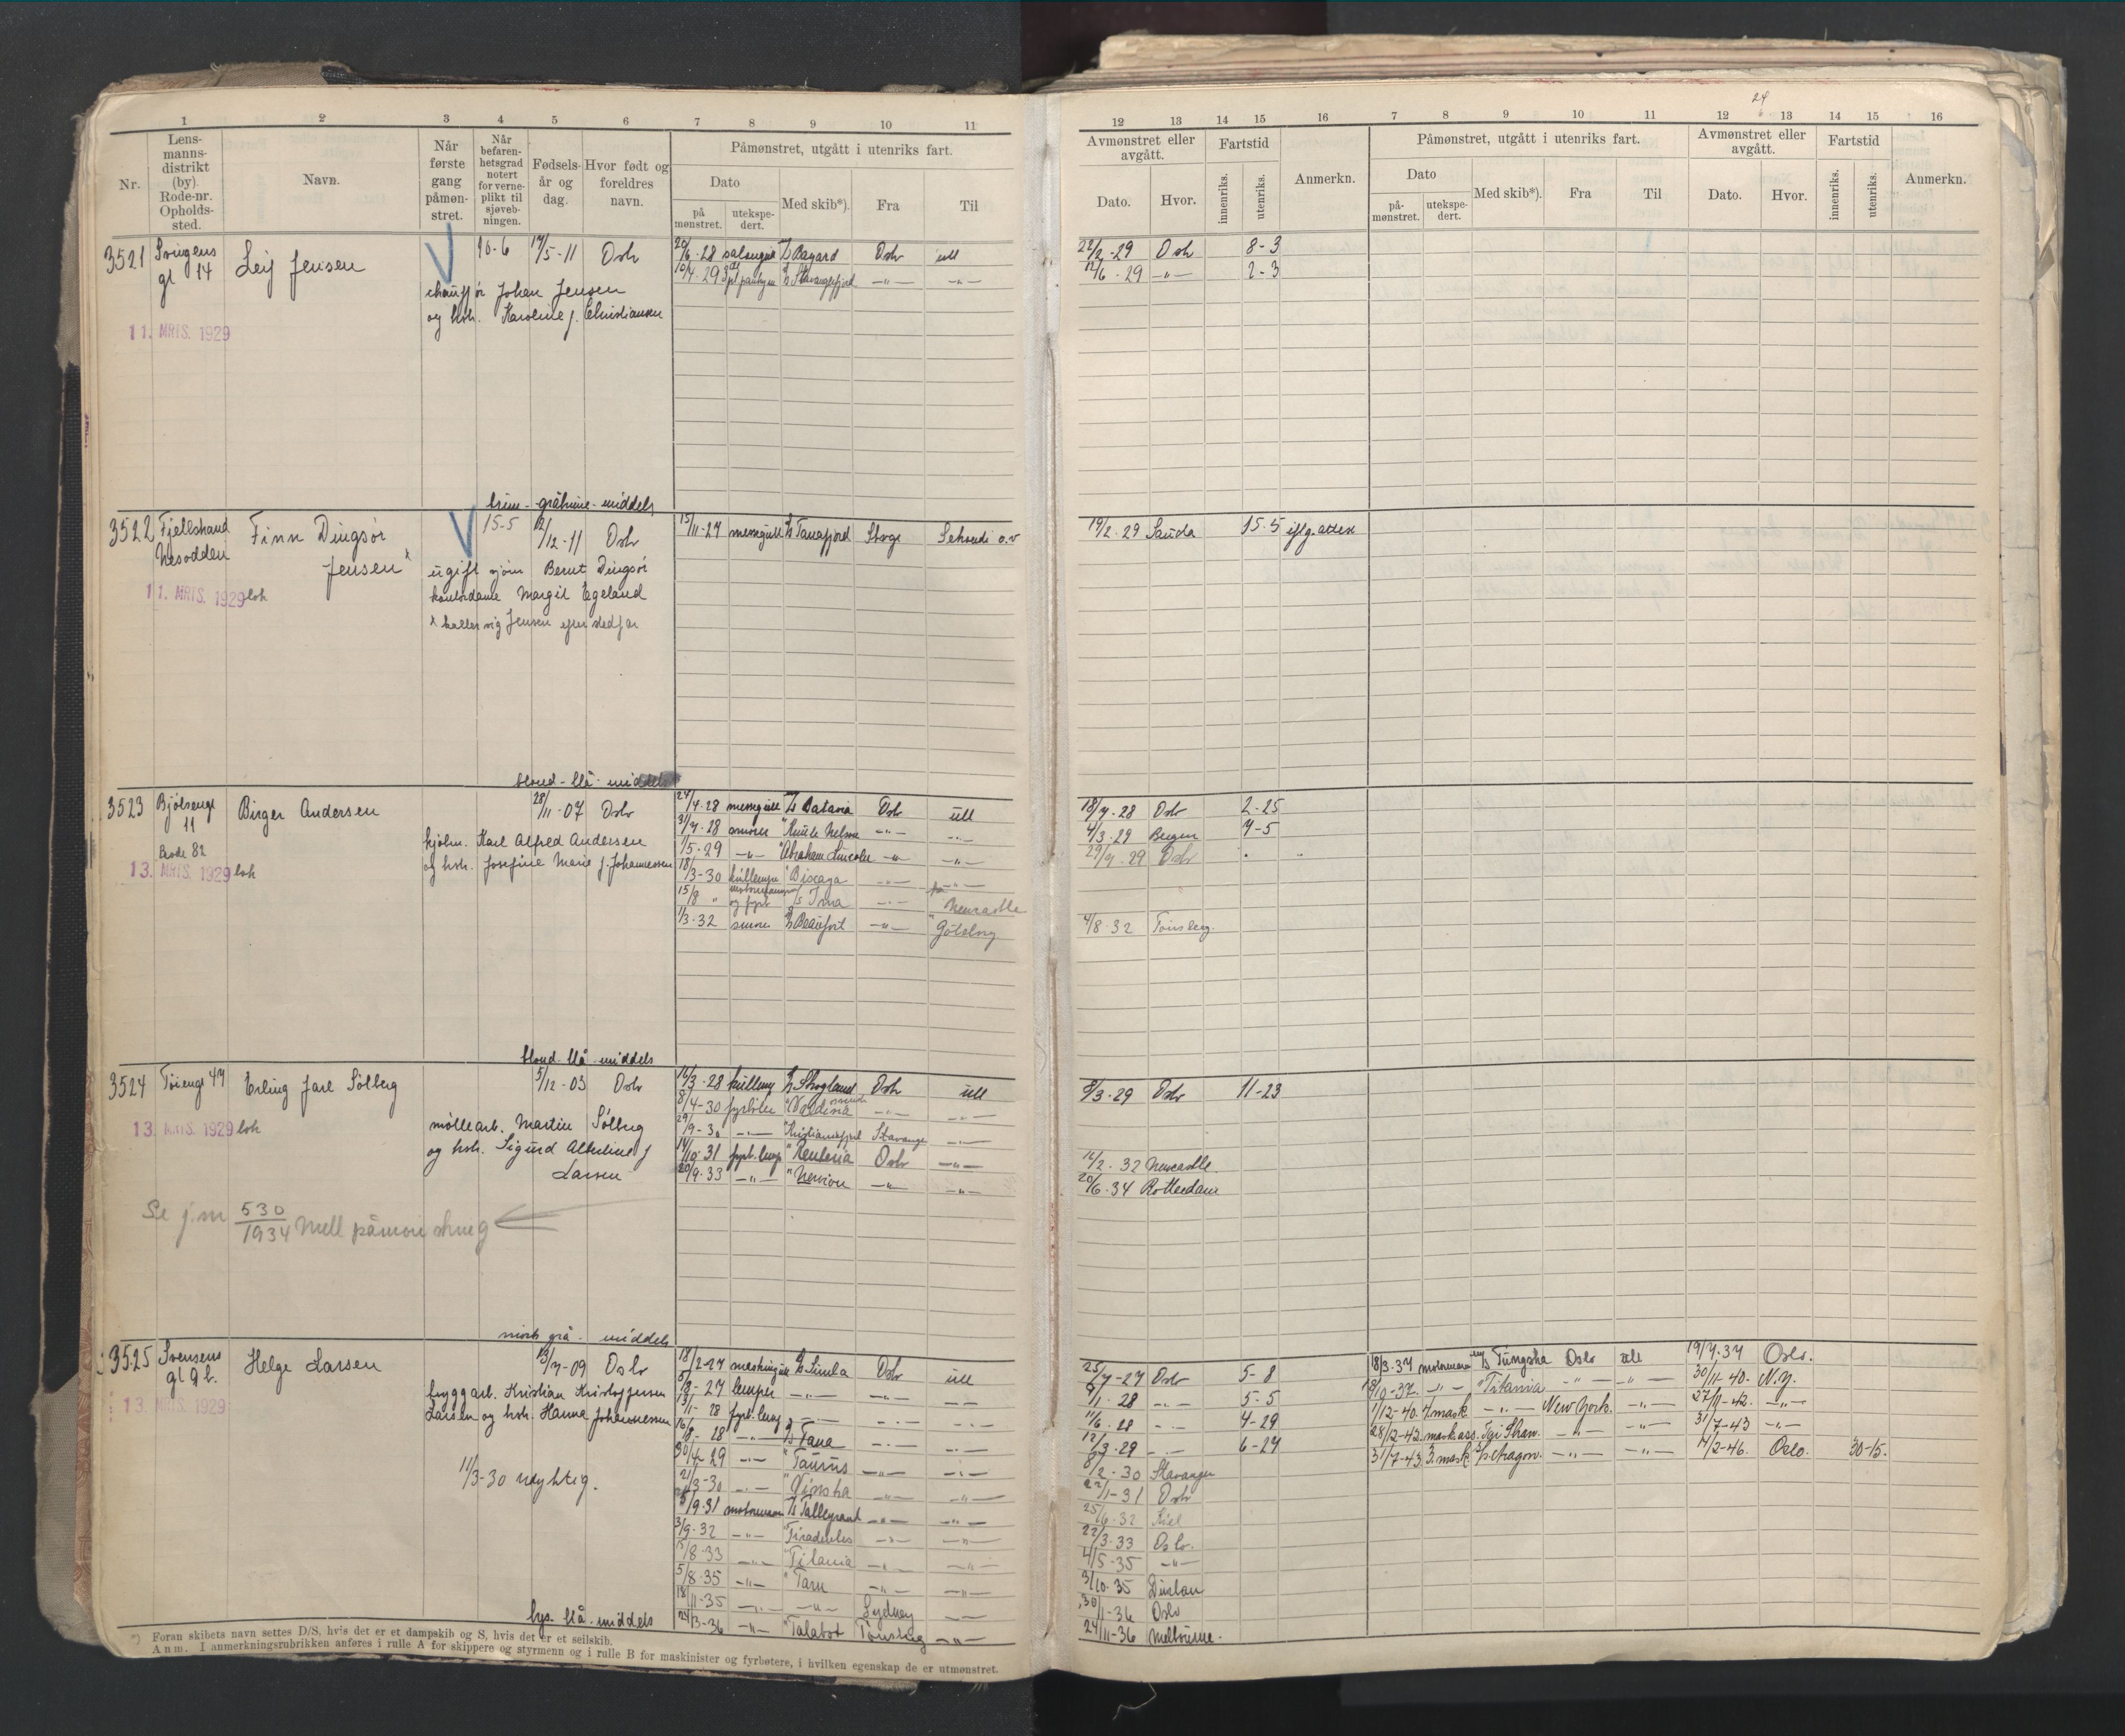 24
1 2 3 4 5 6 7 8 9 10 11
12 13 14 15 16 7 8 9 10 11 12 13 14 15 16
Nr.
Lens-
manns-
distrikt
(by).
Rode-nr.
Opholds-
sted.
Navn.
Når
første
gang
påmøn-
stret.
Når
befaren-
hetsgrad
notert
for verne-
plikt til
sjøveb-
ningen.
Fødsels-
år og
dag.
Hvor født og
foreldres
navn.
Påmønstret, utgått i utenriks fart.
Dato
på
mønstret.
utekspe-
dert.
Med skib*).
Fra
Til
Avmønstret eller
avgått.
Dato.
Hvor.
Fartstid
innenriks.
utenriks.
Anmerkn.
Påmønstret, utgått i utenriks fart.
Dato
på-
mønstret.
utekspe-
dert.
Med skib*).
Fra
Til
Avmønstret eller
avgått.
Dato.
Hvor.
Fartstid
innenriks.
utenriks.
Anmerkn.
3521 Leif Jensen 10-6 17/5-11 Oslo
gt 14
chauffør Johan Jensen
og hstr. Karoline f. Christiansen
11. MRTS. 1929
20/6-28 Oslo utl 22/2-29 Oslo 8-3
10/4-29 Stavangerfjord —"— —"— 12/6-29 —"— 2-3
brun - gråbrune - middels
3522 Fjellstrand Finn Dingsør 15-5 12/12-11 Oslo
Nesodden Jensen x
ugift sjøm Bernt Dingsør
kontordame Margit Egeland
x kaller sig Jensen efter stedfar
11. MRTS. 1929
15/11-27 messegutt Tanafjord 19/2-29 Sauda 15-5 iflg. attest
blond - blå - middels
3523 Bjølsengt Birger Andersen 28/11-07 Oslo
11
Rode 82
Karl Alfred Andersen
og hstr. Josefine Marie f. Johannessen
13. MRTS. 1929
24/4-28 messegutt Batavia Oslo utl 18/7-28 Oslo 2-25
31/7-28 Knute Nelson —"— —"— 4/3-29 Bergen 7-5
1/5-29 —"— Abraham Lincoln —"— —"— 29/9-29 Oslo
18/3-30 Biscaya —"— —"—
15/8 " Irma —"— fra Newcastle
1/3-32 Beaufort —"— " Göteborg 4/8-32 Tønsberg.
blond - blå - middels
3524 Tøiengt 47 Erling Jarl Sølberg 5/12-03 Oslo
møllearb. Martin Sølberg
og hstr. Sigurd Albertine f
Larsen
13. MRTS. 1929
Se j.nr 530/1934
16/3-28 Skogland Oslo utl 8/3-29 Oslo 11-23
8/4-30 fyrbøter —"— —"—
29/9-30 —"— Kristianiafjord Stavanger —"—
14/10-31 fyrb. lemp Oslo —"— 16/2-32 Newcastle.
20/9-33 —"— —"— —"— 20/6-34 Rotterdam
mørk grå - middels
3525 Svensens Helge Larsen 13/7-09 Oslo
gt 9 b.
bryggarb. Kristian Kristoffersen
Larsen og hstr. Hanna Johannessen
13. MRTS. 1929
11/3-30
18/2-27 maskingutt Simla Oslo utl 25/7-27 Oslo 5-8
8-27 lemper —"— —"— —"— 9/1-28 —"— 5-5
13/1-28 fyrb. lemp —"— —"— —"— 11/6-28 —"— 4-29
16/8-28 —"— Tana —"— —"— 12/3-29 —"— 6-27
30/4-29 —"— Taurus —"— —"— 8/2-30 Stavanger
21/3-30 —"— —"— —"— 22/1-31 Oslo
5/9-31 motormann Talleyrand —"— —"— 25/6-32 Kiel
3/9-32 —"— Tiradentes —"— —"— 22/3-33 Oslo.
15/8-33 —"— Titania —"— —"— 4/5-35 —"—
5/8-35 —"— Tarn —"— —"— 3/10-35 Durban
18/11-35 —"— —"— Sydney —"— 30/1-36 Oslo
24/3-36 —"— Talabot Tønsberg —"— 24/11-36 Melbourne.
18/3-37 motormann Tungsha Oslo utl 19/7-37 Oslo.
10-37 —"— Titania —"— —"— 30/11-40. N.Y.
1/12-40. 4. mask —"— New York. —"— 27/11-42. —"—
28/12-42. mask ass. Tai Shan. —"— —"— 31/7-43 —"—
31/7-43. 3. mask —"— —"— 14/2-46. Oslo. 30-15.
lys. blå - middels
*) Foran skibets navn settes D/S, hvis det er et dampskib og S, hvis det er et seilskib.
Anm. I anmerkningsrubrikken anføres i rulle A for skippere og styrmenn og i rulle B for maskinister og fyrbøtere, i hvilken egenskap de er utmønstret.